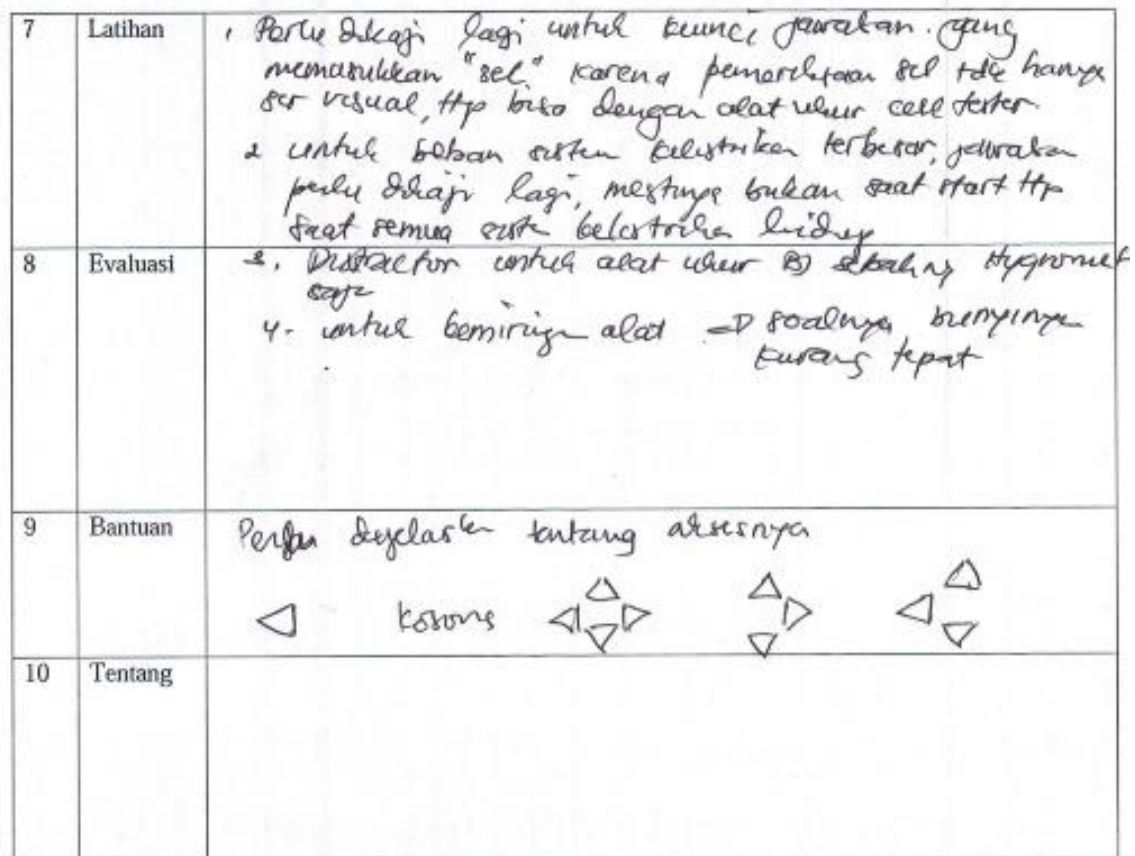 7 Latihan 1 Perlu dikaji lagi untuk kunci jawaban yang
memasukkan "sel" karena pemeriksaan sel tdk hanya
scr visual, ttp bisa dengan alat ukur cell tester
2 untuk beban sistem kelistrikan terbesar, jawaban
perlu dikaji lagi, mestinya bukan saat start ttp
saat semua sistem kelistrikan hidup
8 Evaluasi 3. Distractor untuk alat ukur B) sebaiknya Hygromet
saja
4. untuk kemiringan alat → soalnya bunyinya
kurang tepat
9 Bantuan Perlu dijelaskan tentang aksesnya
kosong
10 Tentang